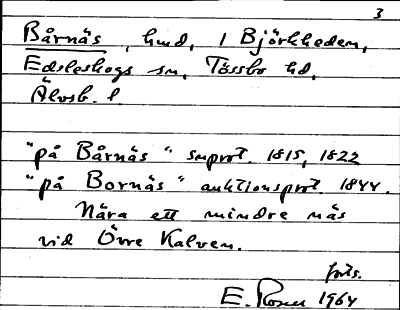 3
Bårnäs, hmd, i Björkheden,
Edsleskogs sn, Tössbo hd,
Älvsb. l
"på Bårnäs" snprot. 1815, 1822
"på Bornäs" auktionsprot. 1844.
Nära ett mindre näs
vid Övre Kalven.
forts.
E. Rosen 1964